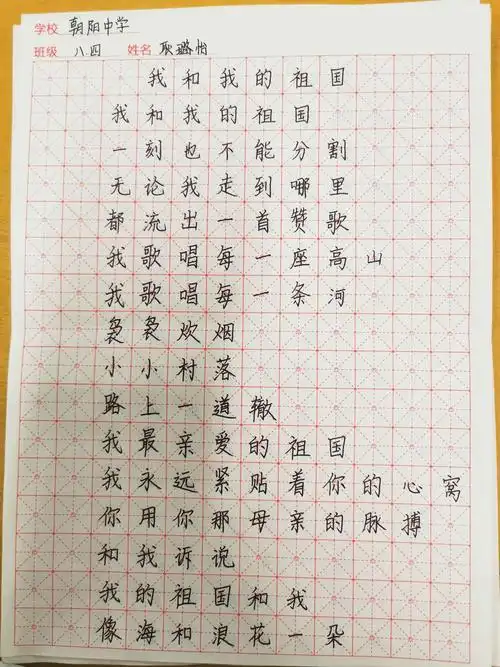 学校 朝阳中学
班级 八四 姓名 耿璐怡
我和我的祖国
我和我的祖国
一刻也不能分割
无论我走到哪里
都流出一首赞歌
我歌唱每一座高山
我歌唱每一条河
袅袅炊烟
小小村落
路上一道辙
我最亲爱的祖国
我永远紧贴着你的心窝
你用你那母亲的脉搏
和我诉说
我的祖国和我
像海和浪花一朵